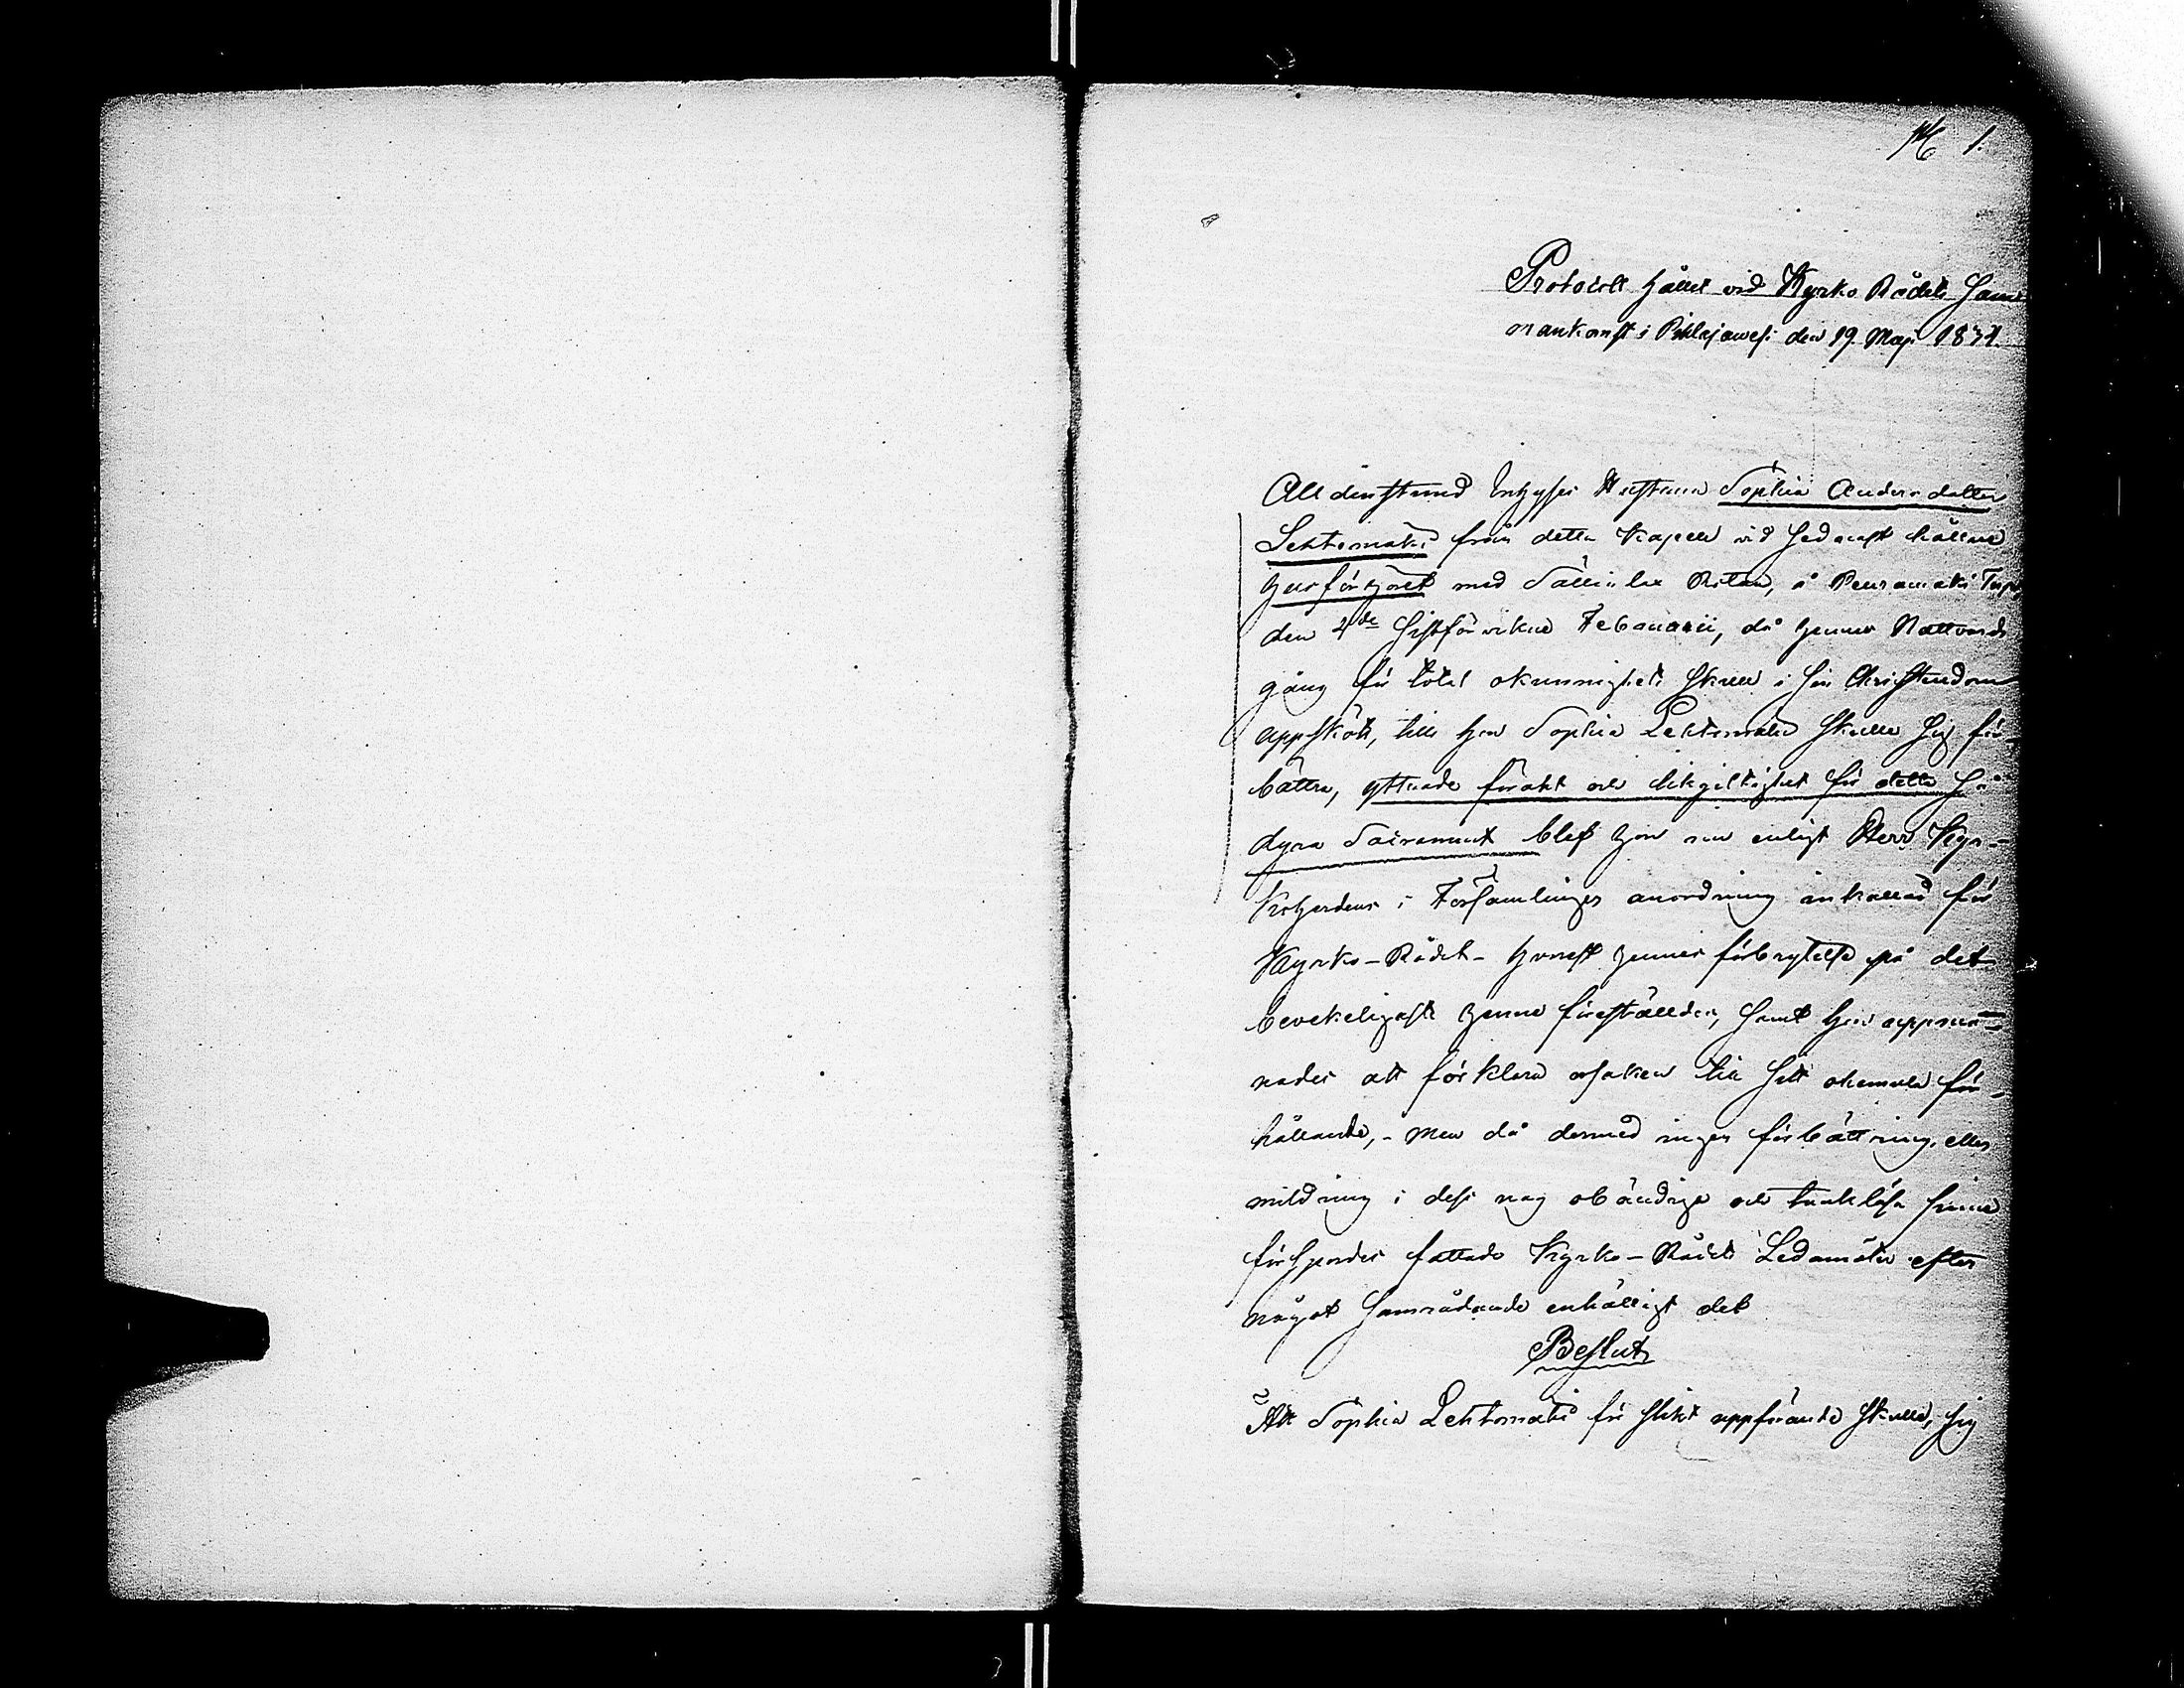 № 1.
Protocoll hållet vid Kyrko Rådets Sam
mankomst i Pihlajawesi den 19 Maji 1834.
Alldenstund Inhyses Hustrun Sophia Andersdotter
Lehtomäki från detta Kapell vid sednast hållne
husförhöret med Sällin lax Rotan, å Peuramäki Torp,
den 4de sistförvikne Februarii, då hennes Nattvards
gång för total okunnighets skull i sin Christendom
uppsköts, till hon Sophia Lehtomäki skulle sig för-
bättra, yttrade förakt och likgiltighet för detta Hö
dyra Sacrament blef hon nu enligt Herr Kyr-
koherdens i Församlingen anordning inkallad för
Kyrko-Rådet - hvarest hennes förbrytelse på det
bevekeligaste henne föreställdes, samt hon uppma-
nades att förklara orsaken till sitt okarnade för-
hållande, - Men då dermed ingen förbättring eller
mildring i dess nog obändiga och tanklösa sinne
förspordes fattade Kyrko-Rådets Ledamöter efter
något samrådande enhälligt det
Beslut
Att Sophia Lehtomäki för slikt uppförande skulle, sig